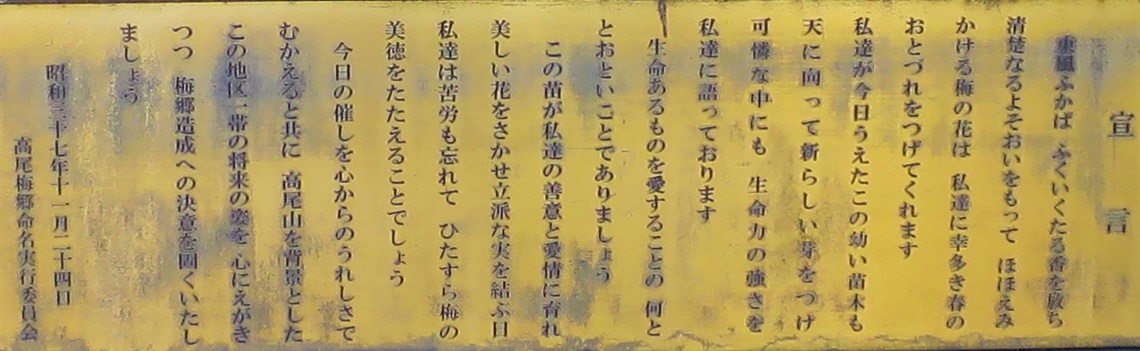 宣言
東風ふかば ふくいくたる香を放ち
清楚なるよそおいをもって ほほえみ
かける梅の花は 私達に幸多き春の
おとづれをつげてくれます
私達が今日うえたこの幼い苗木も
天に向って新らしい芽をつけ
可憐な中にも 生命力の強さを
私達に語っております
生命あるものを愛することの 何と
とおといことでありましょう
この苗が私達の善意と愛情に育れ
美しい花をさかせ立派な実を結ぶ日
私達は苦労も忘れて ひたすら梅の
美徳をたたえることでしょう
今日の催しを心からのうれしさで
むかえると共に 高尾山を背景とした
この地区一帯の将来の姿を 心にえがき
つつ 梅郷造成への決意を固くいたし
ましょう
昭和三十七年十一月二十四日
高尾梅郷命名実行委員会